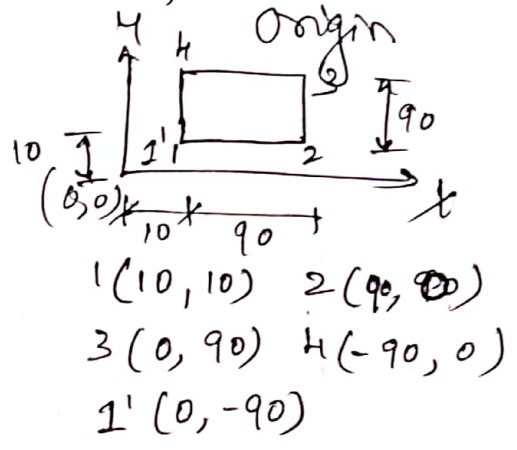 Origin
Y
4
3
90
10
1'
1
2
(0,0)
X
10
90
1(10,10) 2(90, 0)
3(0, 90) 4(-90, 0)
1'(0,-90)